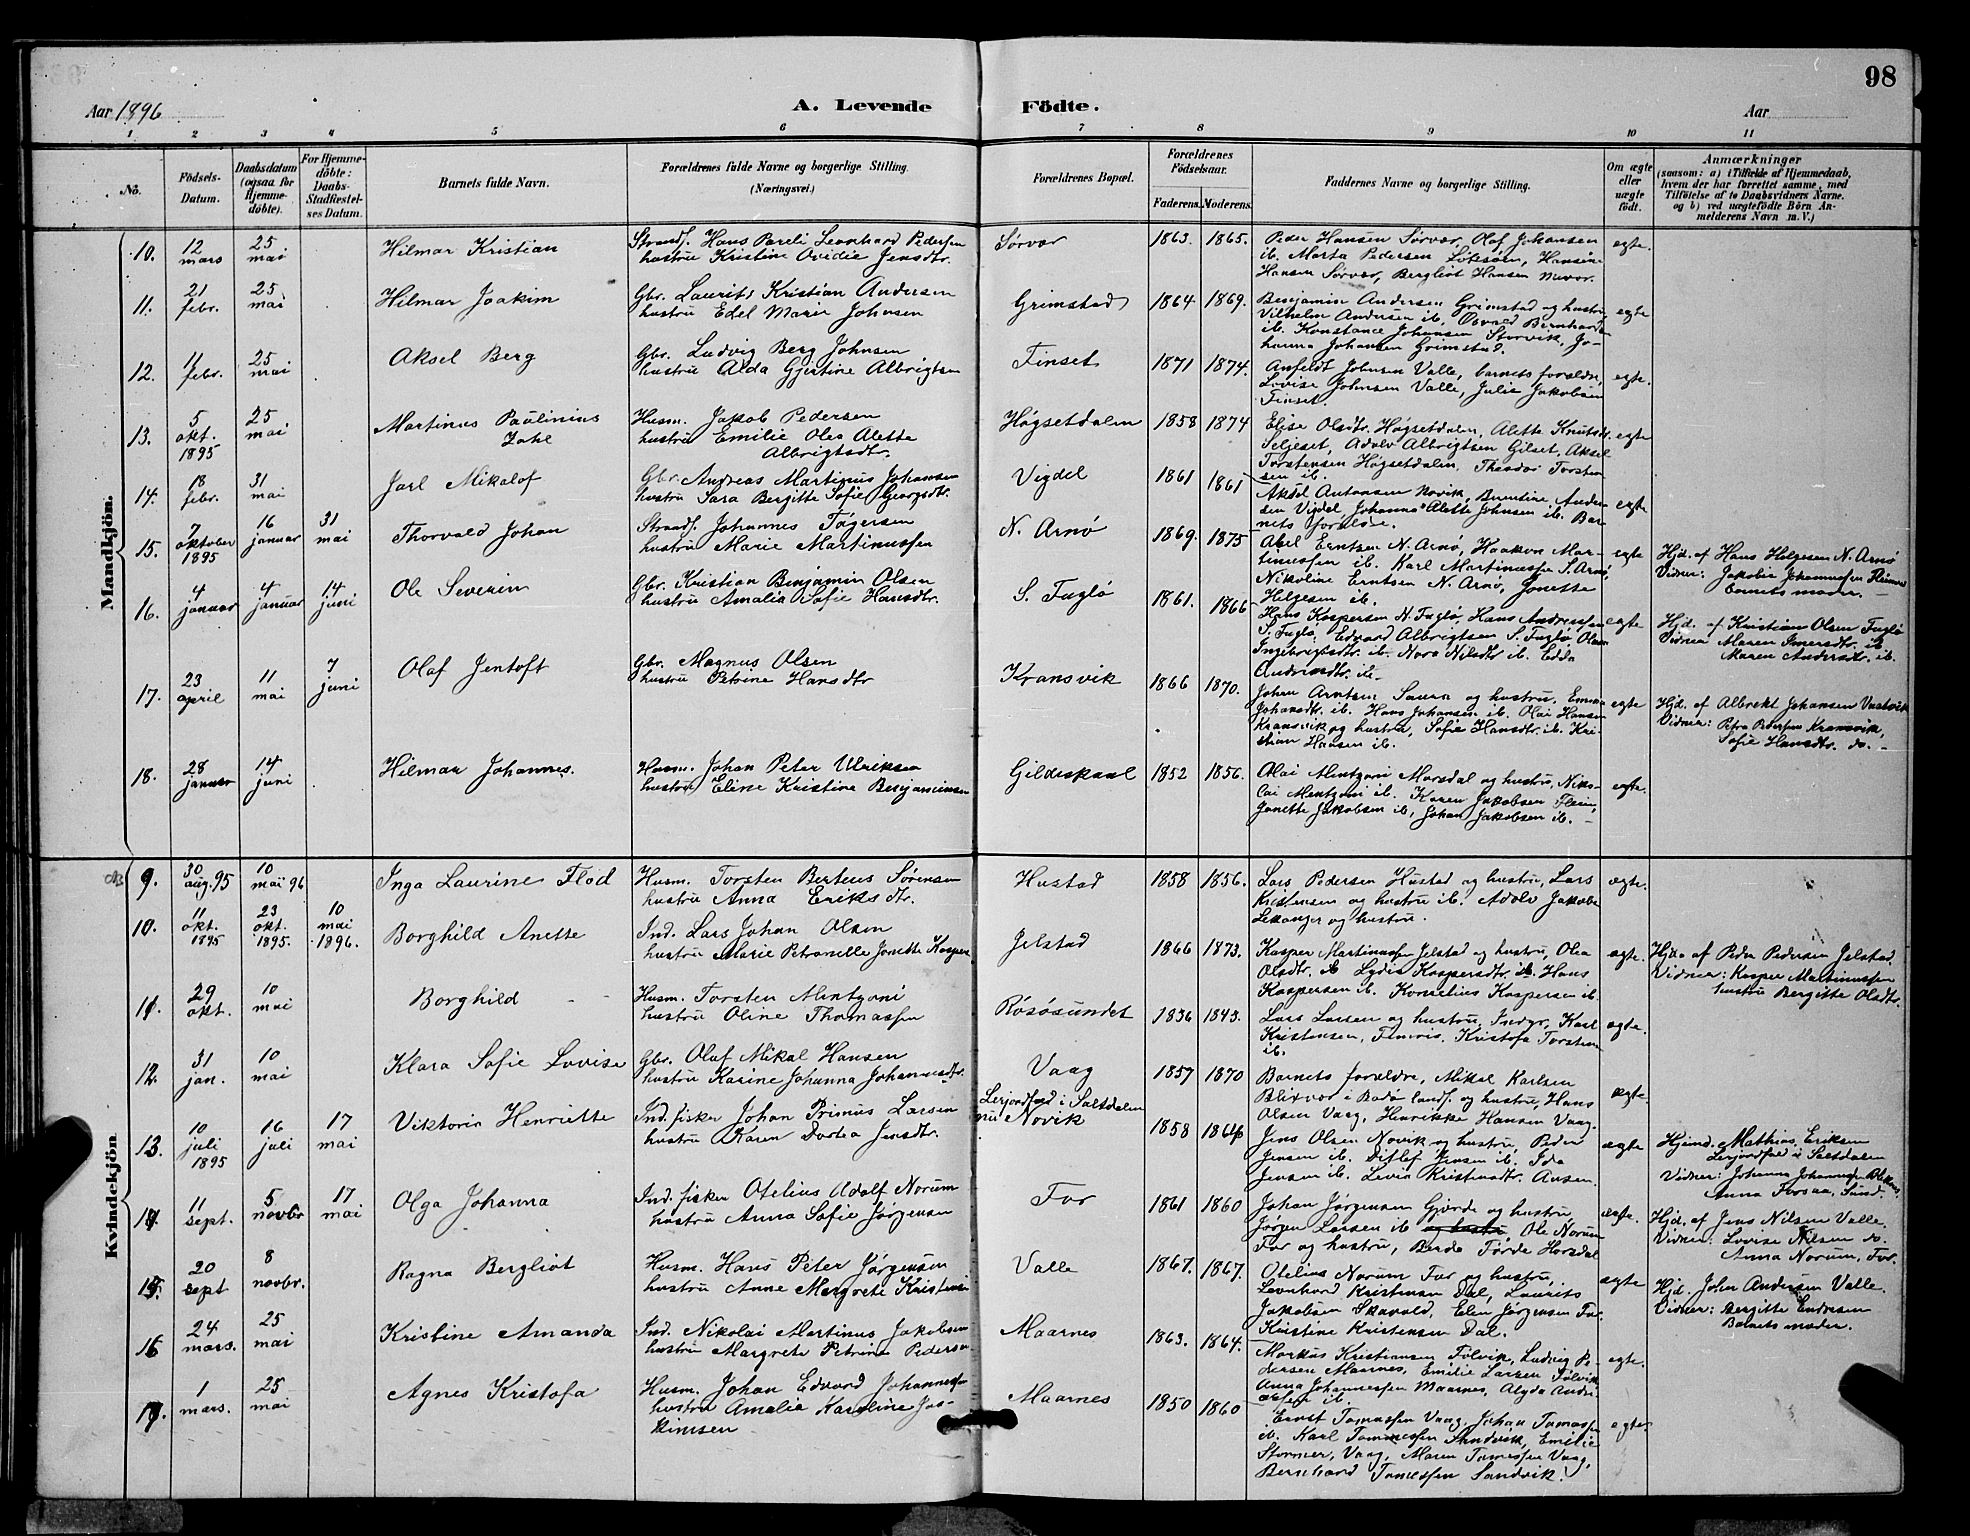 98
Aar 1896
A. Levende Födte.
Aar
1 2 3 4 5 6 7 8 9 10 11
No.
Födsels-Datum.
Daabsdatum (ogsaa for Hjemmedöbte).
For Hjemmedöbte: Daabs-Stadfæstelses Datum.
Barnets fulde Navn.
Forældrenes fulde Navne og borgerlige Stilling.
(Næringsvei.)
Forældrenes Bopæl.
Forældrenes Födselsaar.
Faderens. Moderens.
Faddernes Navne og borgerlig Stilling.
Om ægte eller uægte födt.
Anmærkninger
(saasom: a) i Tilfælde af Hjemmedaab, hvem der har forrettet samme, med Tilföielse af to Daabsvidners Navne. og b) ved uægtefödte Börn Anmelderens Navn m. V.)
Mandkjön.
10. 12 mars 25 mai Hilmar Kristian
Strands. Hans Pareli Leonhard Pedersen
hustru Kristine Ovidie Jensdtr.
Sørvær 1863. 1865.
Peder Hansen Sørvær, Olaf Johansen
ib. Marta Pedersen
Hansen Sørvær, Bergliot Hansen
ægte.
11. 21 febr. 25 mai Hilmar Joakim
Gbr. Laurits Kristian Andersen
hustru Edel Marie Johnsen
Grimstad 1864 1869.
Benjamin Andersen Grimstad og hustru
Vilhelm Andersen ib, Osvald Bernhard
ib. Konstance Johansen Storvik, Jo-
hanna Johansen Grimstad.
ægte
12. 11 febr. 25 mai Aksel Berg
Gbr. Ludvig Berg Johnsen
hustru Alda Gjertine Albrigtsen
Finset 1871 1874.
Anfeldt Johnsen Valle, barnets forældre,
Lovise Johnsen Valle, Julie Jakobsen
Finset.
ægte.
13. 5 okt. 1895 25 mai Martinus Paulinius
Zahl
Husm. Jakob Pedersen
hustru Emilie Olea Alette
Albrigtsdtr.
Høgsetdalen 1858 1874
Elise Olsdtr. Høgsetdalen, Alette Knutsdtr.
Seljeset, Adolv Albrigtsen Gilset, Aksel
Torstensen Høgsetdalen, Theodor Torsten
sen ib.
ægte
14. 18 febr. 31 mai Jarl Mikalof
Gbr. Andreas Martinus Johansen
hustru Sara Bergitte Sofie Georgsdtr.
Vigdel 1861 1861
Aksel Antonsen Novik, Andre
sen Vigdel, Johanna Alette Johnsen ib. Bar
nets forældre.
ægte
15. 7 oktober 1895 16 januar 31 mai Thorvald Johan
Strands. Johannes Tøgersen
hustru Marie Martinussen
N. Arnø 1869. 1875
Abel Erntsen N. Arnø, Haakon Mar-
tinussen ib. Karl Martinussen S. Arnø,
Nikoline Erntsen N. Arnø, Jonette
Helgesen ib.
ægte
Hjd. af Hans Helgesen N. Arnø
Vidner: Jakobie Johannessen
barnets moder.
16. 4 januar 4 januar 14 juni Ole Severin
Gbr. Kristian Benjamin Olsen
hustru Amalia Sofie Hansdtr.
S. Fuglø 1861. 1866
Hans Kaspersen N. Fuglø, Hans Andreassen
S. Fuglø, Edvard Albrigtsen S. Fuglø
Ingebrigtsdtr. ib. Nora Nilsdtr ib. Edda
Andersdtr. ib.
ægte
Hjd. af Kristian Olsen Fuglø
Vidner Maren ib.
Maren Andersdtr. ib.
17. 23 april 11 mai 7 juni Olaf Jentoft
Gbr. Magnus Olsen
hustru Petrine Hansdtr
Kransvik 1866 1870.
Johan Arntsen Saura og hustru, Emma
Johansdtr. ib. Hans Johansen ib. Olai Hansen
Kransvik og hustru, Sofie Hansdtr. ib. Kri-
stian Hansen ib.
ægte
Hjd. af Albrekt Johansen
Vidner: Petra Pedersen Kransvik,
Sofie Hansdtr. do.
18. 28 januar 14 juni Hilmar Johannes.
Husm. Johan Peter Ulriksen
hustru Eline Kristine Benjaminsen
Gildeskaal 1852 1856.
Olai Mentzoni Marsdal og hustru, Niko-
lai Mentzoni ib. Karen Jakobsen
Janette Jakobsen ib, Johan Jakobsen ib.
ægte.
Kvindekjön
9. 30 aug. 95 10 mai 96 Inga Laurine Flod
Husm. Torsten Berteus Sørensen
hustru Anna Eriksdtr.
Hustad 1858 1856.
Lars Pedersen Hustad og hustru, Lars
Kristensen og hustru ib. Adolv Jakobs
Lekanger og hustru.
ægte.
10. 11 okt. 1895 23 okt. 1895. 10 mai 1896. Borghild Anette
Ind. Lars Johan Olsen
hustru Marie Petronelle Jonette Kaspers
Jelstad 1866 1873.
Kasper Martinussen Jelstad og hustru, Olea
Olsdtr. ib Lydia Kaspersdtr. ib. Hans
Kaspersen ib. Kornelius Kaspersen ib.
ægte.
Hjd. af Peder Pedersen Jelstad.
Vidner: Kasper Martinussen
hustru Bergitte Olsdtr.
11. 29 okt. 10 mai Borghild
Husm. Torsten Mentzoni
hustru Oline Thomassen
Røsøsundet 1836 1843.
Lars Larsen og hustru, Karl
Kristensen, Kristofa Torstens
ib.
ægte.
12. 31 jan. 10 mai Klara Sofie Lovise
Gbr. Olaf Mikal Hansen
hustru Karine Johanna Johannesdtr.
Vaag 1857 1870
Barnets forældre, Mikal Karlsen
Blixvær i Bodø lands. og hustru, Hans
Olsen Vaag, Henrikke Hansen Vaag.
ægte.
13. 10 juli 1895 16 juli 17 mai Viktoria Henriette
Ind. fisker Johan Primus Larsen
hustru Karen Dortea Jensdtr.
i Saltdalen
nu Novik 1858 1864
Jens Olsen Novik og hustru, Peder
Jensen ib. Ditlef Jensen ib. Ida
Jensen ib. Kristensdtr. Ansen.
ægte
Hjemd. Mathias Eriksen
i Saltdalen
Vidner: Johanna Johannessen
Anna Forsaa, Sund.
14. 11 sept. 5 novbr 17 mai Olga Johanna
Ind. fisker Otelius Adolf Norum
hustru Anna Sofie Jørgensen
For 1861 1860
Johan Jørgensen Gjørde og hustru,
Jørgen Larsen ib og hustru, Ole Norum
For og hustru, Horsdal
ægte.
Hjd. af Jens Nilsen Valle.
Vidner: Lovise Nilsen do.
Anna Norum, For.
15. 20 sept 8 novbr. Ragna Bergliot
Husm. Hans Peter Jørgensen
hustru Anne Margrete Kristensen
Valle 1867. 1867.
Otelius Norum For og hustru,
Leonhard Kristensen Dal, Laurits
Jakobsen Skavold, Elen Jørgensen For.
Kristine Kristensen Dal.
ægte
Hjd. John Andersen Valle.
Vidner: Bergitte Endresen
Barnets moder.
16 24 mars. 25 mai Kristine Amanda
Ind. Nikolai Martinus Jakobsen
hustru Margrete Petrine Pedersen
Maarnes 1863. 1864.
Markus Kristiansen Følvik, Ludvig Pe-
dersen Maarnes, Emilie Larsen Følvik
Anna Johannessen Maarnes, Alyda Andre
assen ib.
ægte.
17. 1 mars. 25 mai Agnes Kristofa
Husm. Johan Edvard Johannessen
hustru Amalie Karoline Joa-
kimsen
Maarnes 1850 1860
Ernst Tomassen Vaag, Johan Tomassen
ib. Karl Tommessen Sandvik, Emilie
Stormer, Vaag, Maren Tomessen Vaag,
Bernhard Tomessen Sandvik.
ægte.